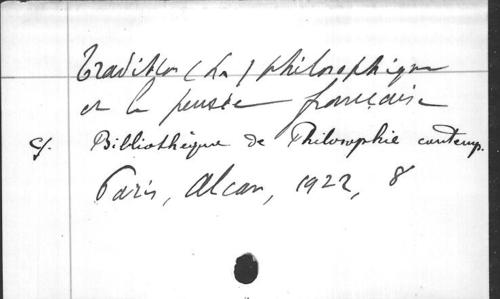 Tradition (La) philosophique
et la pensée française
cf. Bibliothèque de Philosophie contemp.
Paris, Alcan, 1922, 8